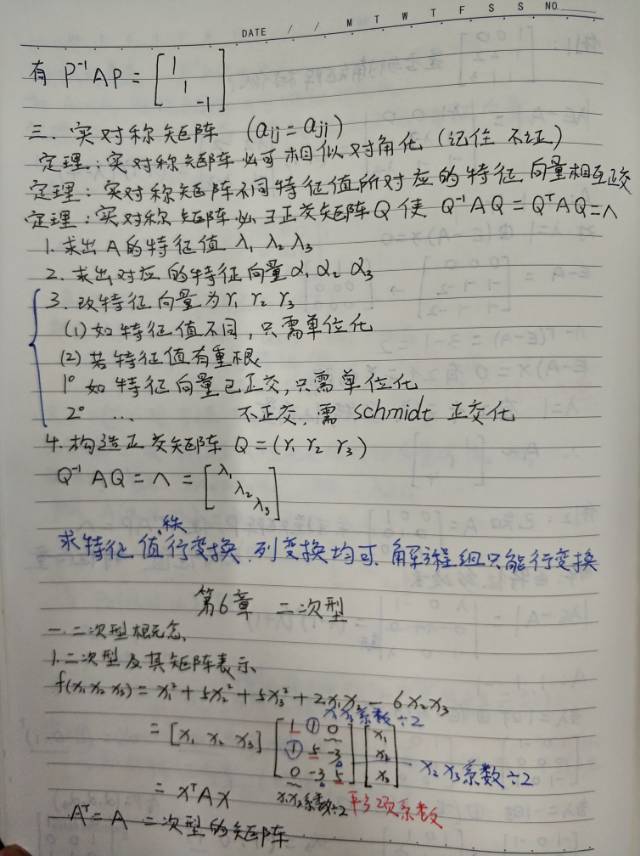 DATE / / M T W T F S S NO.
有 P⁻¹AP = [1 1 -1]
三. 实对称矩阵 (aij = aji)
定理:实对称矩阵必可相似对角化 (记住 不证)
定理:实对称矩阵不同特征值所对应的特征向量相互正交
定理:实对称矩阵必∃正交矩阵Q使 Q⁻¹AQ = QᵀAQ = Λ
1. 求出A的特征值 λ₁ λ₂ λ₃
2. 求出对应的特征向量 α₁ α₂ α₃
3. 改特征向量为 γ₁ γ₂ γ₃
(1) 如特征值不同,只需单位化
(2) 若特征值有重根
1° 如特征向量已正交,只需单位化
2° ... 不正交,需 schmidt 正交化
4. 构造正交矩阵 Q = (γ₁ γ₂ γ₃)
Q⁻¹AQ = Λ = [λ₁ λ₂ λ₃]
秩
求特征值行变换、列变换均可,解方程组只能行变换
第6章 二次型
一. 二次型概念、
1. 二次型及其矩阵表示
f(x₁ x₂ x₃) = x₁² + 5x₂² + 5x₃² + 2x₁x₂ - 6x₂x₃
x₁x₂系数÷2
= [x₁ x₂ x₃] [1 ① 0
① 5 -3
0 -3 5] [x₁ x₂ x₃]
x₂x₃系数÷2
= xᵀAx
x₁x₃系数÷2 平方项系数
Aᵀ = A 二次型的矩阵